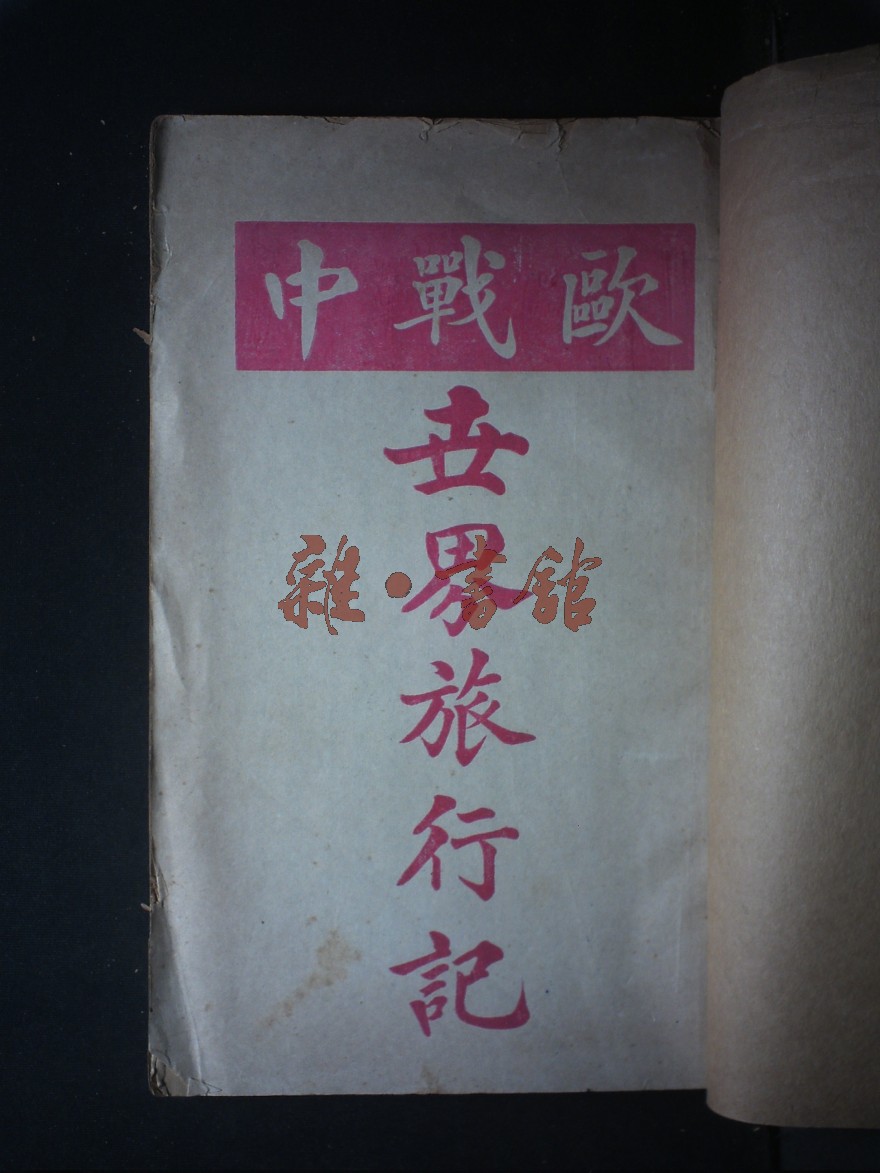 歐戰中
世界旅行記
雜·書館